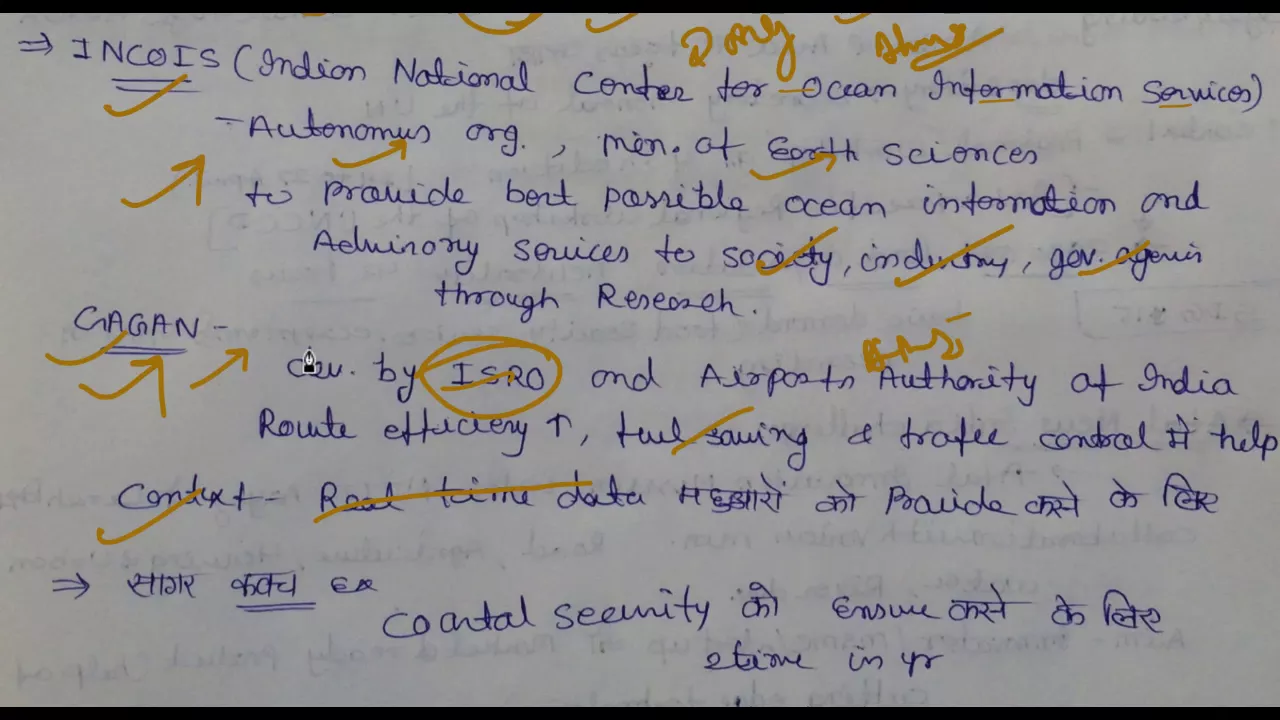 ⇒ INCOIS (Indian National Center for Ocean Information Services)
- Autonomus org., min. of Earth sciences
to provide best possible ocean information and
Advisory services to society, industry, gov. agencies
through Research.
GAGAN -
dev. by ISRO and Airports Authority of India
Route efficiency ↑, fuel saving & trafic control में help
Context - Real time data मछुआरो को Provide करने के लिए
⇒ सागर कवच ex
coastal security को Ensure करने के लिए
2 time in yr